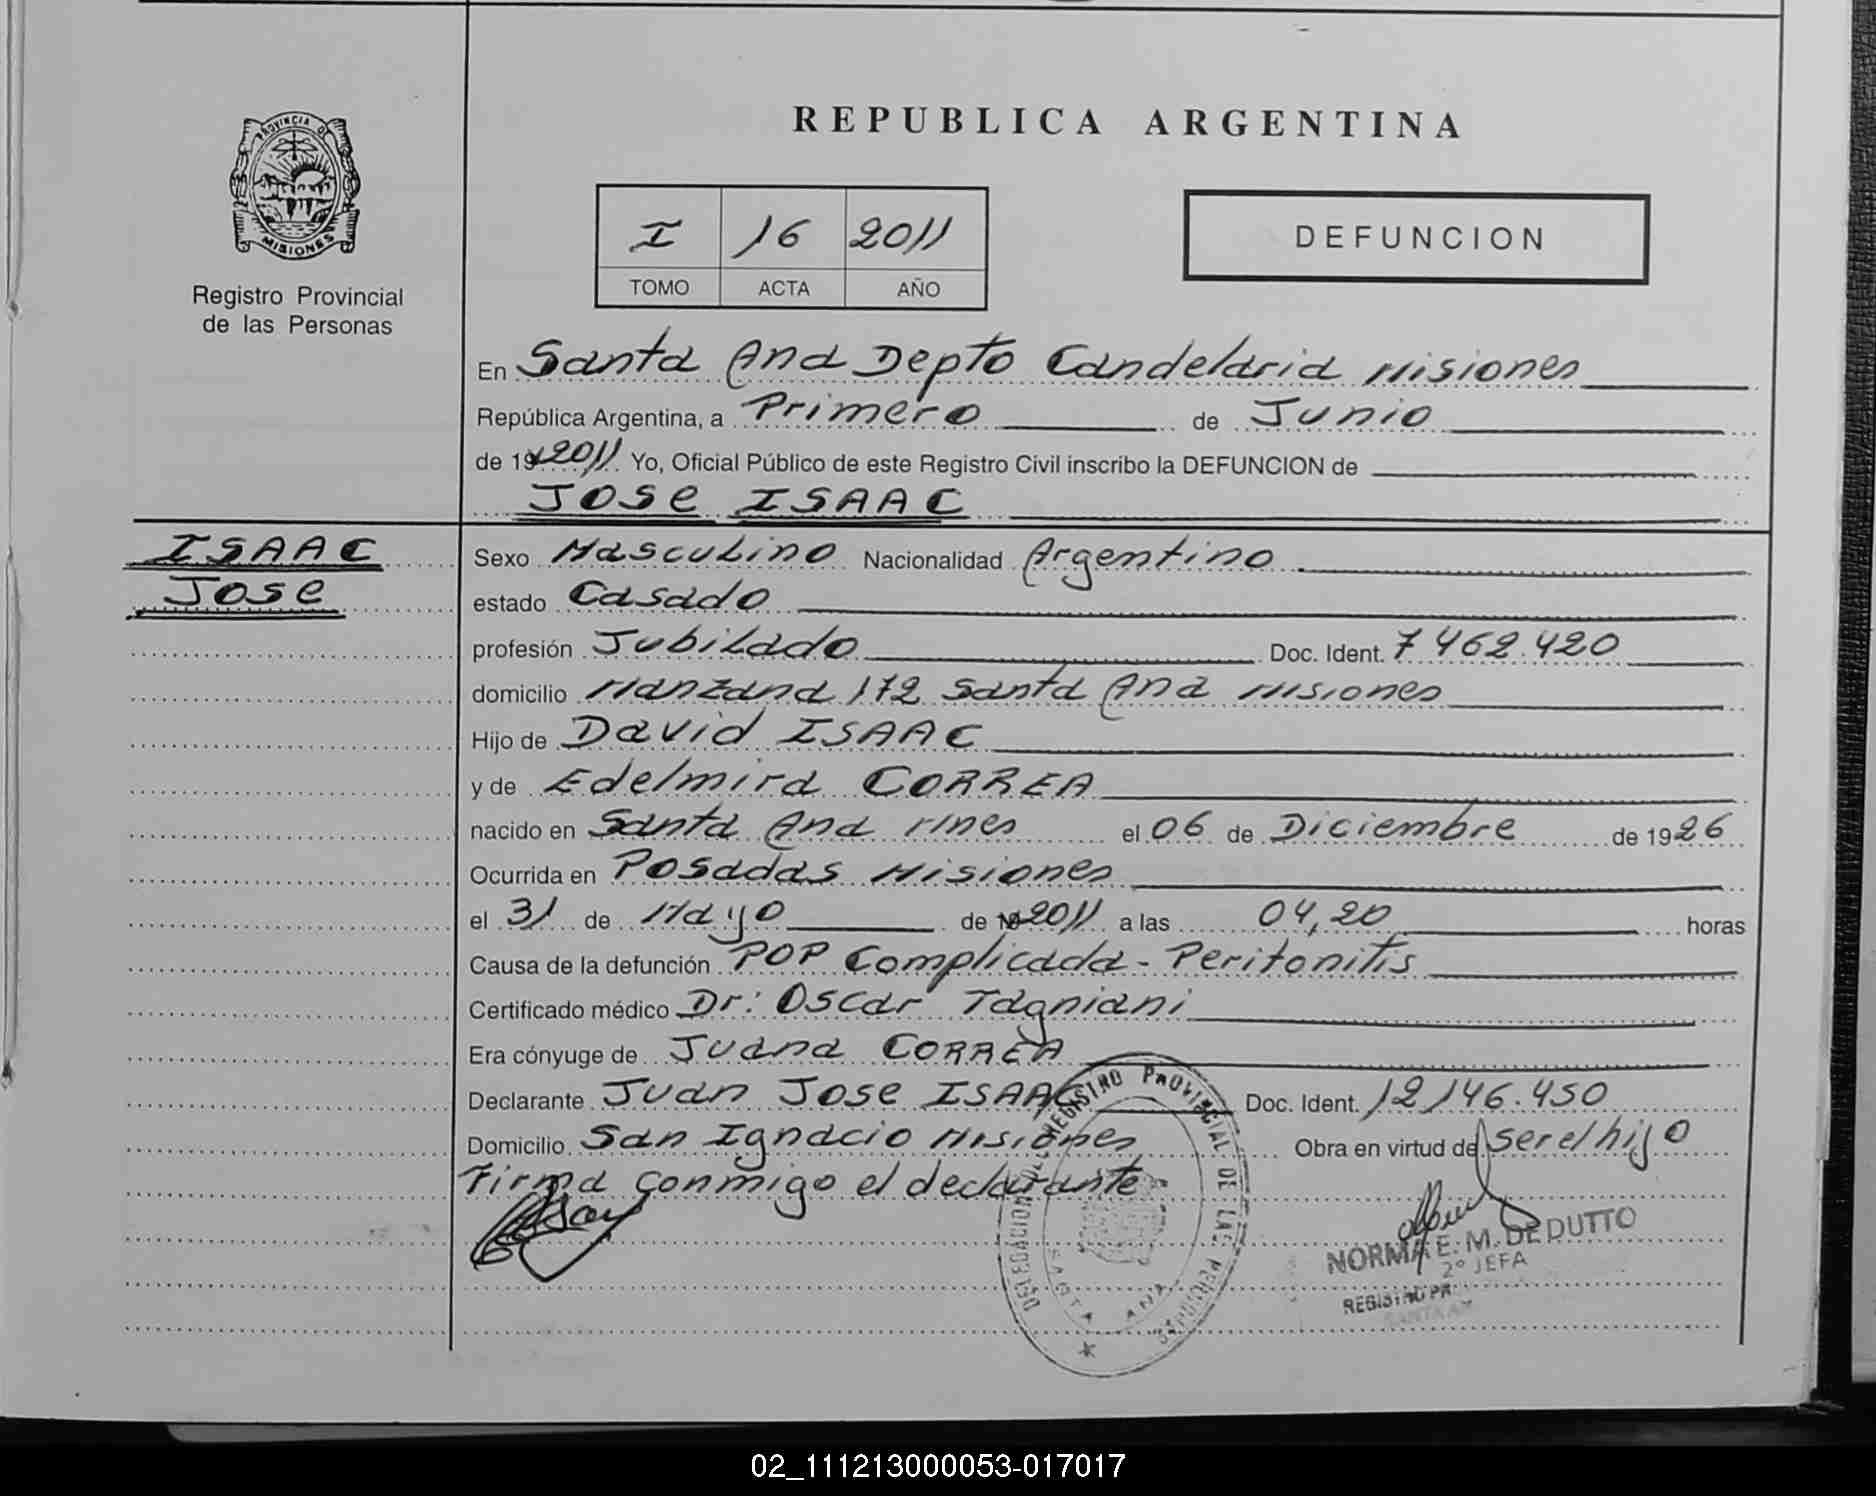 REPUBLICA ARGENTINA
PROVINCIA DE
MISIONES
Registro Provincial
de las Personas
I 16 2011
TOMO ACTA AÑO
DEFUNCION
En Santa Ana Depto Candelaria Misiones
República Argentina, a Primero de Junio
de 19 2011 Yo, Oficial Público de este Registro Civil inscribo la DEFUNCION de
JOSE ISAAC
ISAAC
JOSE
Sexo Masculino Nacionalidad Argentino
estado Casado
profesión Jubilado Doc. Ident. 7462.420
domicilio Manzana 172 Santa Ana Misiones
Hijo de David ISAAC
y de Edelmira CORREA
nacido en Santa Ana Mnes el 06 de Diciembre de 1926
Ocurrida en Posadas Misiones
el 31 de Mayo de 19 2011 a las 04,20 horas
Causa de la defunción POP Complicada - Peritonitis
Certificado médico Dr: Oscar Tagniani
Era cónyuge de Juana CORREA
Declarante Juan Jose ISAAC Doc. Ident. 12146.450
Domicilio San Ignacio Misiones Obra en virtud de ser el hijo
Firma conmigo el declarante
DELEGACION REGISTRO PROVINCIAL DE LAS PERSONAS
SANTA ANA
NORMA E. M. DE DUTTO
2º JEFA
REGISTRO PR
SANTA AN
02_111213000053-017017